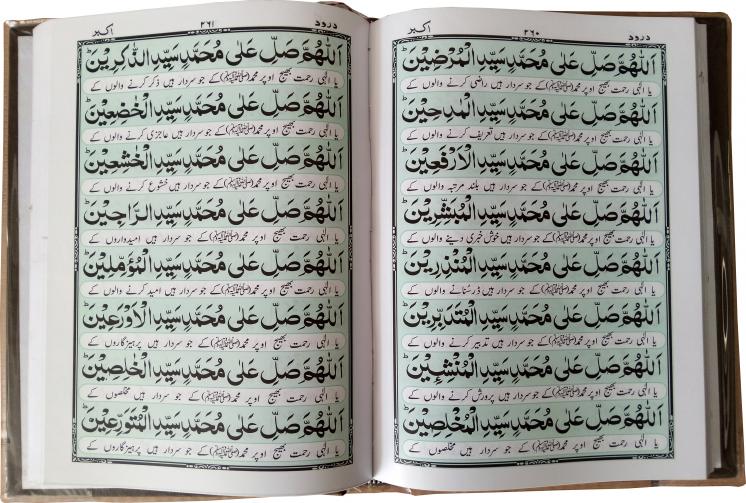 درود ۳۶۰ اکبر
اَللّٰهُمَّ صَلِّ عَلٰى مُحَمَّدٍ سَيِّدِ الْمُرْضِيْنَ ؕ
یا الٰہی رحمت بھیج اوپر محمد(ﷺ)کے جو سردار ہیں راضی کرنے والوں کے
اَللّٰهُمَّ صَلِّ عَلٰى مُحَمَّدٍ سَيِّدِ الْمَدِحِيْنَ ؕ
یا الٰہی رحمت بھیج اوپر محمد(ﷺ)کے جو سردار ہیں تعریف کرنے والوں کے
اَللّٰهُمَّ صَلِّ عَلٰى مُحَمَّدٍ سَيِّدِ الْاَرْفَعِيْنَ ؕ
یا الٰہی رحمت بھیج اوپر محمد(ﷺ)کے جو سردار ہیں بلند مرتبہ والوں کے
اَللّٰهُمَّ صَلِّ عَلٰى مُحَمَّدٍ سَيِّدِ الْمُبَشِّرِيْنَ ؕ
یا الٰہی رحمت بھیج اوپر محمد(ﷺ)کے جو سردار ہیں خوش خبری دینے والوں کے
اَللّٰهُمَّ صَلِّ عَلٰى مُحَمَّدٍ سَيِّدِ الْمُنْذِرِيْنَ ؕ
یا الٰہی رحمت بھیج اوپر محمد(ﷺ)کے جو سردار ہیں ڈر سنانے والوں کے
اَللّٰهُمَّ صَلِّ عَلٰى مُحَمَّدٍ سَيِّدِ الْمُتَدَبِّرِيْنَ ؕ
یا الٰہی رحمت بھیج اوپر محمد(ﷺ)کے جو سردار ہیں تدبیر کرنے والوں کے
اَللّٰهُمَّ صَلِّ عَلٰى مُحَمَّدٍ سَيِّدِ الْمُنْشِئِيْنَ ؕ
یا الٰہی رحمت بھیج اوپر محمد(ﷺ)کے جو سردار ہیں پرورش کرنے والوں کے
اَللّٰهُمَّ صَلِّ عَلٰى مُحَمَّدٍ سَيِّدِ الْمُخْلِصِيْنَ ؕ
یا الٰہی رحمت بھیج اوپر محمد(ﷺ)کے جو سردار ہیں مخلصوں کے
درود ۳۶۱ اکبر
اَللّٰهُمَّ صَلِّ عَلٰى مُحَمَّدٍ سَيِّدِ الذّٰكِرِيْنَ ؕ
یا الٰہی رحمت بھیج اوپر محمد(ﷺ)کے جو سردار ہیں ذکر کرنے والوں کے
اَللّٰهُمَّ صَلِّ عَلٰى مُحَمَّدٍ سَيِّدِ الْخٰضِعِيْنَ ؕ
یا الٰہی رحمت بھیج اوپر محمد(ﷺ)کے جو سردار ہیں عاجزی کرنے والوں کے
اَللّٰهُمَّ صَلِّ عَلٰى مُحَمَّدٍ سَيِّدِ الْخٰشِعِيْنَ ؕ
یا الٰہی رحمت بھیج اوپر محمد(ﷺ)کے جو سردار ہیں خشوع کرنے والوں کے
اَللّٰهُمَّ صَلِّ عَلٰى مُحَمَّدٍ سَيِّدِ الرَّاجِيْنَ ؕ
یا الٰہی رحمت بھیج اوپر محمد(ﷺ)کے جو سردار ہیں امیدواروں کے
اَللّٰهُمَّ صَلِّ عَلٰى مُحَمَّدٍ سَيِّدِ الْمُؤَمِّلِيْنَ ؕ
یا الٰہی رحمت بھیج اوپر محمد(ﷺ)کے جو سردار ہیں امید کرنے والوں کے
اَللّٰهُمَّ صَلِّ عَلٰى مُحَمَّدٍ سَيِّدِ الْاَوْرَعِيْنَ ؕ
یا الٰہی رحمت بھیج اوپر محمد(ﷺ)کے جو سردار ہیں پرہیزگاروں کے
اَللّٰهُمَّ صَلِّ عَلٰى مُحَمَّدٍ سَيِّدِ الْخٰلِصِيْنَ ؕ
یا الٰہی رحمت بھیج اوپر محمد(ﷺ)کے جو سردار ہیں مخلصوں کے
اَللّٰهُمَّ صَلِّ عَلٰى مُحَمَّدٍ سَيِّدِ الْمُتَوَرِّعِيْنَ ؕ
یا الٰہی رحمت بھیج اوپر محمد(ﷺ)کے جو سردار ہیں پرہیزگاروں کے